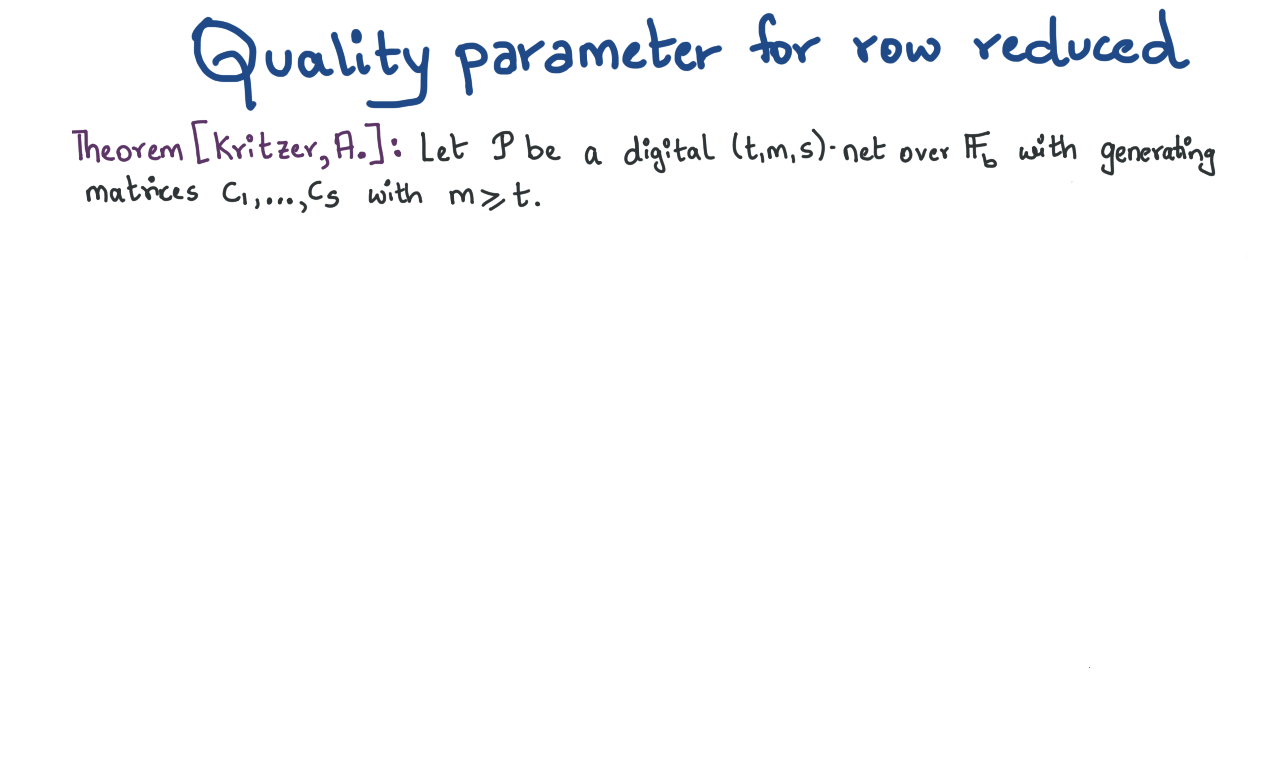 Quality parameter for row reduced
Theorem [Kritzer, A.]: Let P be a digital (t,m,s)-net over 𝔽_b with generating
matrices C₁,...,Cₛ with m ≥ t.